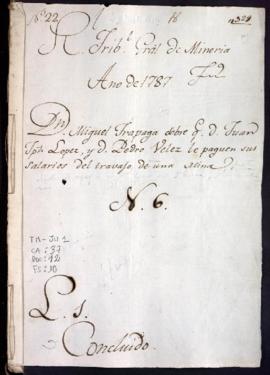 Nº 22
R. Tribl. Gral de Mineria
Ano de 1787
Dn. Miguel Trapaga sobre q. d. Juan
Jph Lopez, y d. Pedro Velez le paguen sus
salarios del travajo de una Mina.
N. 6.
TM-JU 1
CA: 37
DOC: 12
FS: 10
L. S.
Concluido.